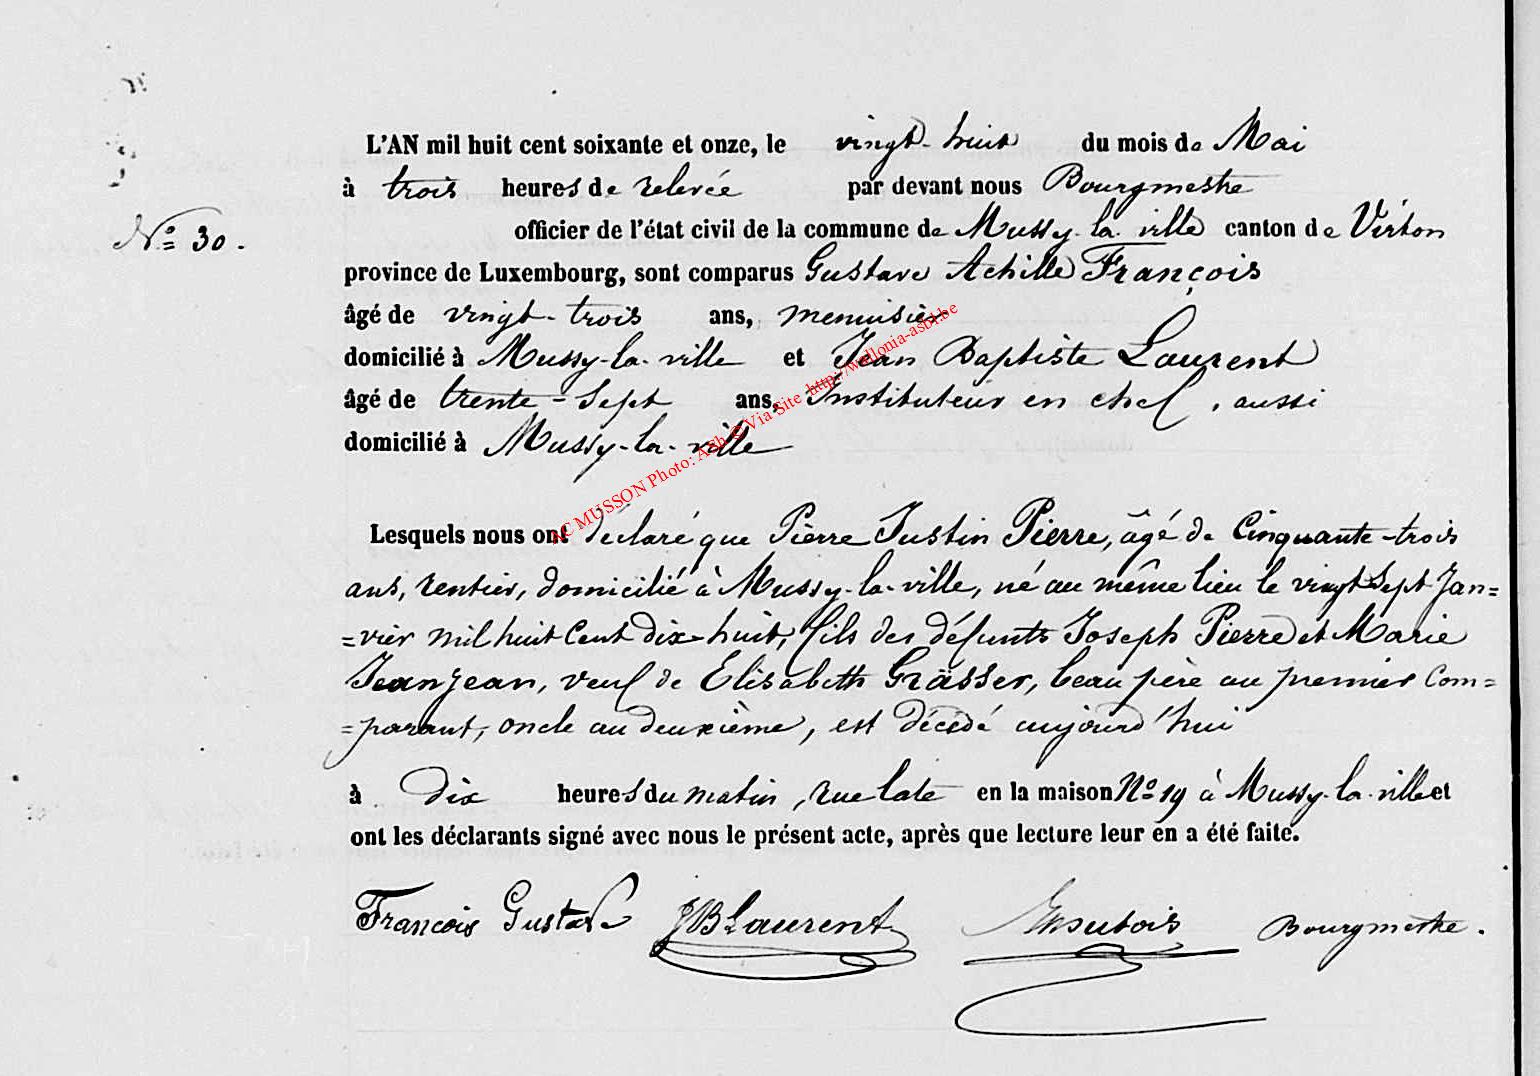 L'AN mil huit cent soixante et onze, le vingt-huit du mois de Mai
à trois heures de relevée par devant nous Bourgmestre
N.° 30. officier de l'état civil de la commune de Mussy-la-ville canton de Virton
province de Luxembourg, sont comparus Gustave Achille François
âgé de vingt-trois ans, menuisier
domicilié à Mussy-la-ville et Jean Baptiste Laurent
âgé de trente-Sept ans, Instituteur en chef, aussi
domicilié à Mussy-la-ville
AC MUSSON Photo: Asb © Via Site http://wallonia-asbl.be
Lesquels nous ont déclaré que Pierre Justin Pierre, âgé de Cinquante-trois
ans, rentier, domicilié à Mussy-la-ville, né au même lieu le vingt Sept Jan=
=vier mil huit Cent dix-huit, fils des défunts Joseph Pierre et Marie
Jeanjean, veuf de Elisabeth Grässer, beau père au premier Com=
=parant, oncle au deuxième, est décédé aujourd'hui
à dix heures du matin, rue late en la maison N° 19 à Mussy-la-ville et
ont les déclarants signé avec nous le présent acte, après que lecture leur en a été faite.
François Gustave JB Laurent Bourgmestre.